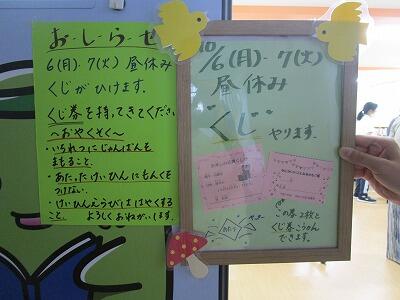 お・し・ら・せ
6(月)・7(火) 昼休み
くじがひけます。
くじ券を持ってきてください
～おやくそく～
・いちれつにじゅんばんを
まもること。
・あたったけいひんにもんくを
つけない。
・けいひんえらびははやくする
こと。 よろしくおねがいします。
10/6(月)・7(火)
昼休み
"くじ"
やります。
この券2枚と
くじ券こうかん
できます。